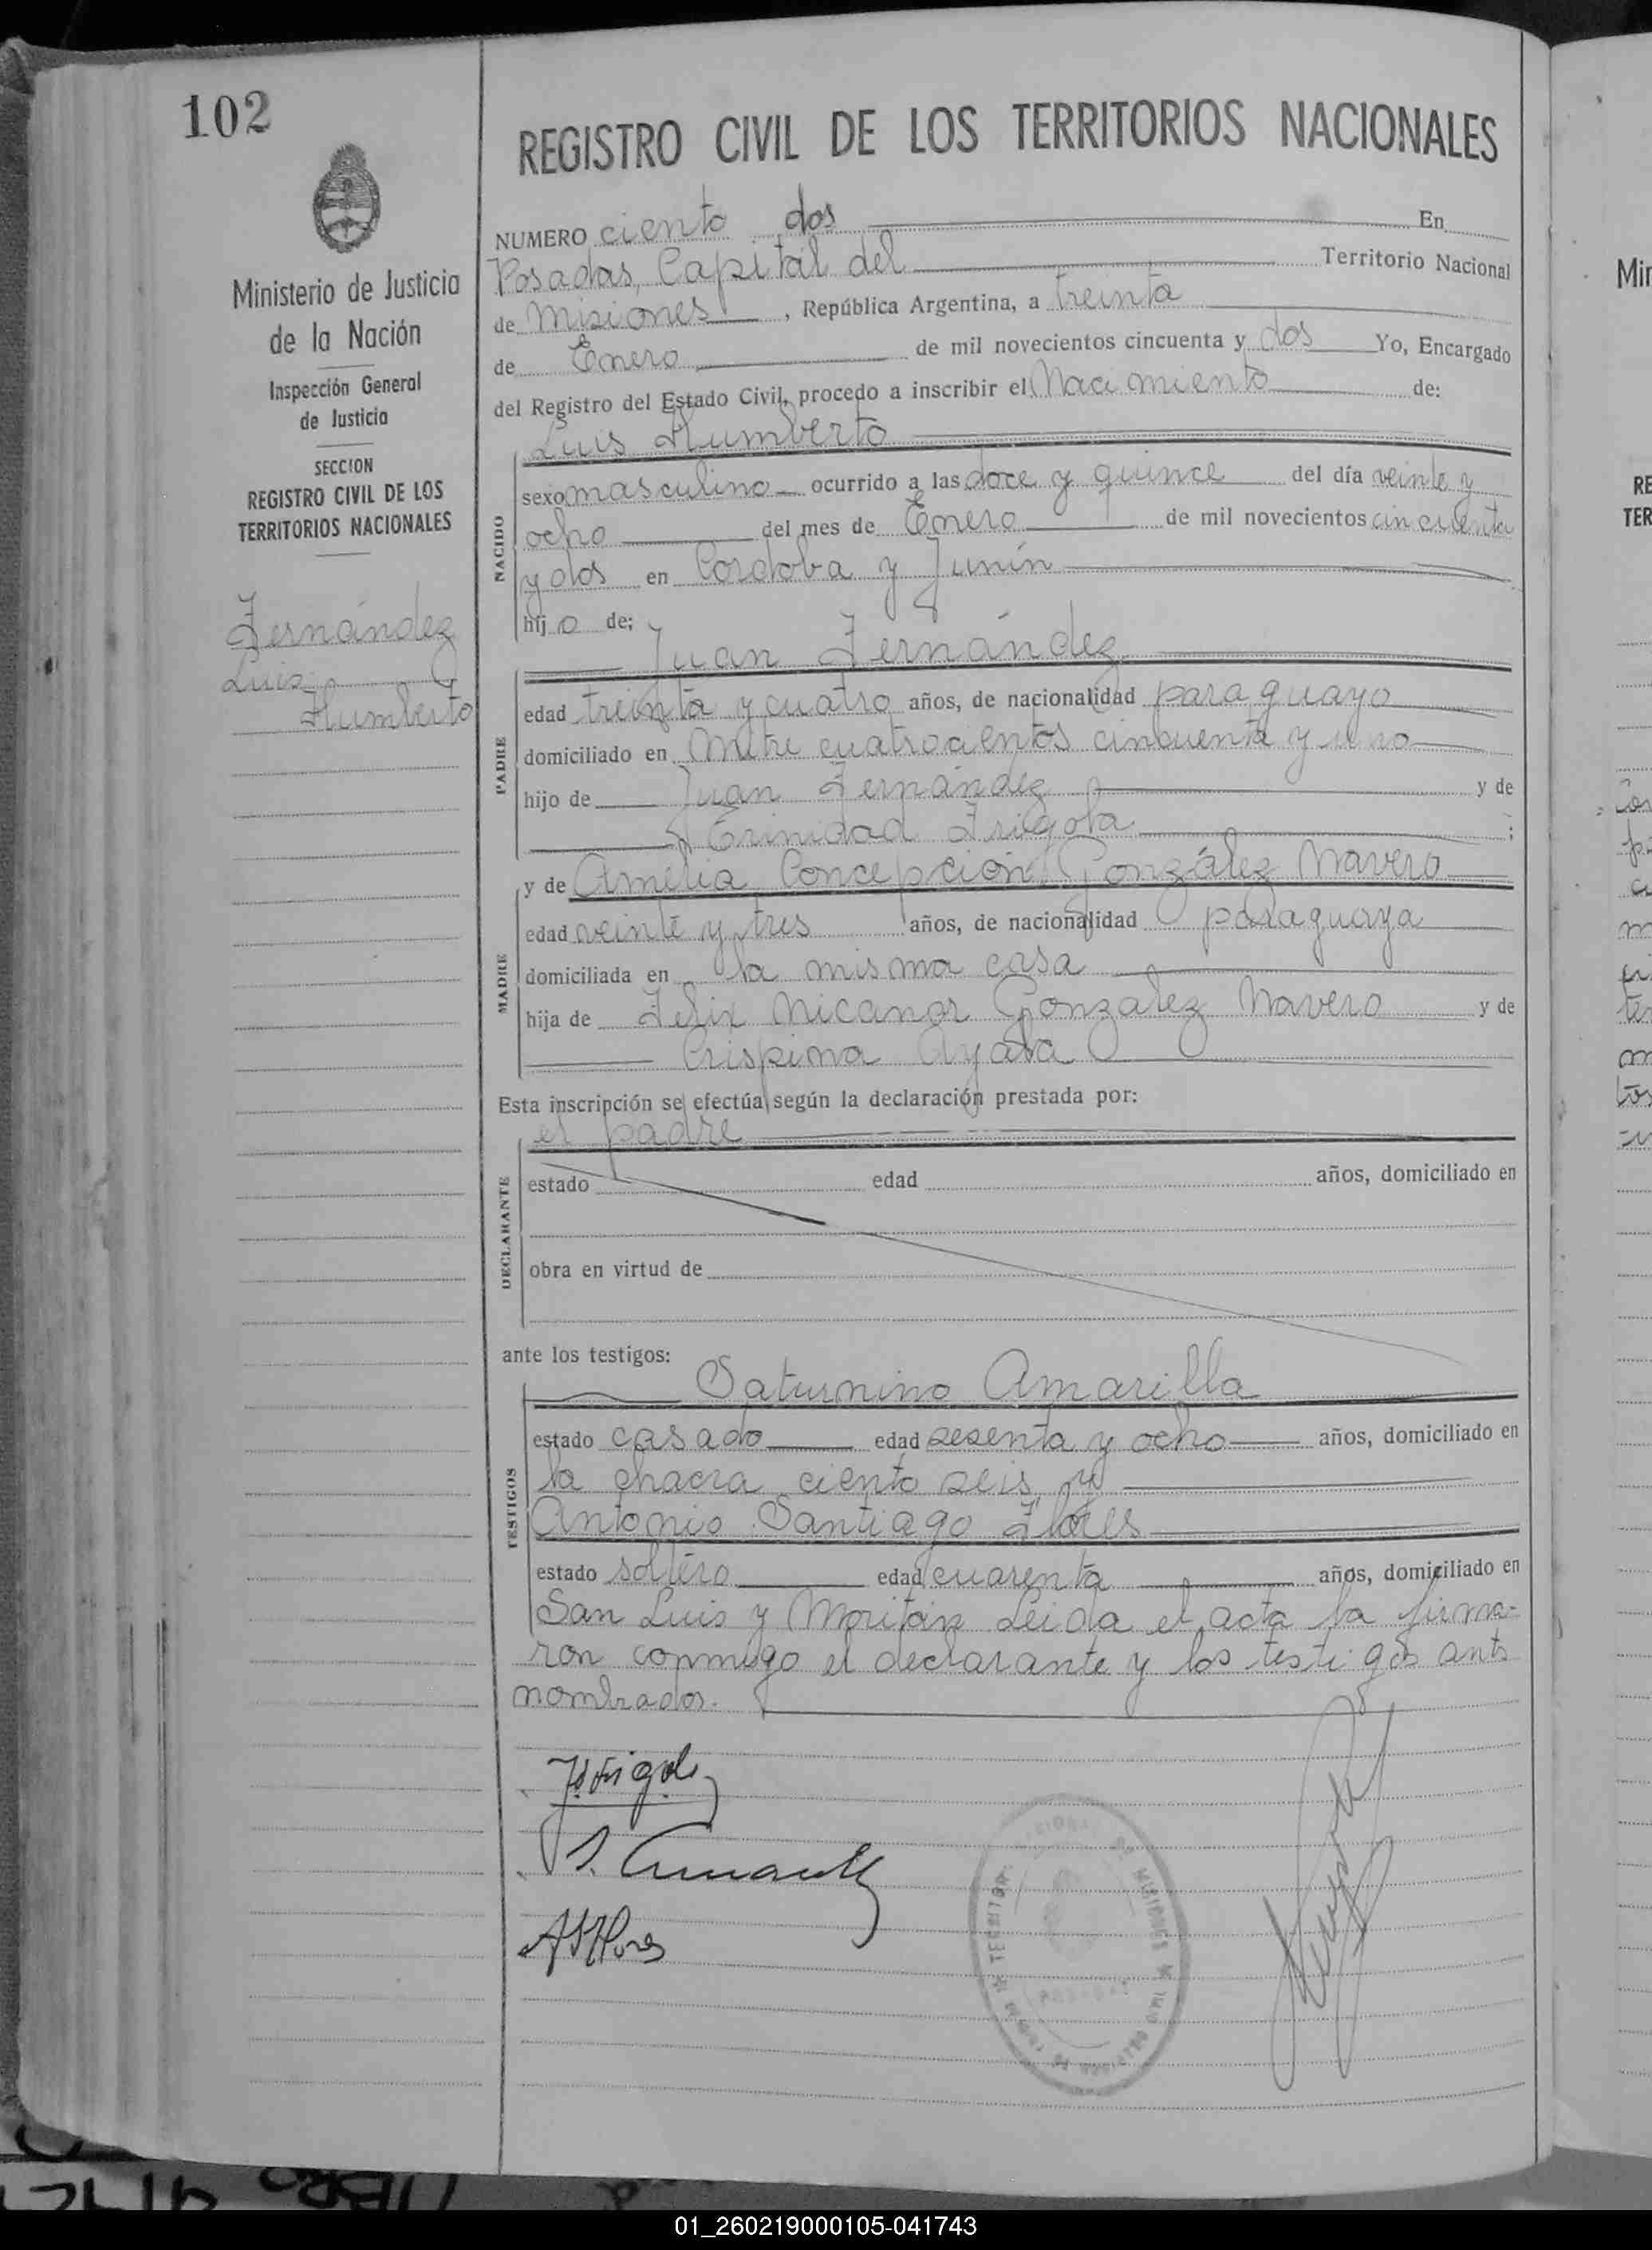 102
Ministerio de Justicia
de la Nación
Inspección General
de Justicia
SECCION
REGISTRO CIVIL DE LOS
TERRITORIOS NACIONALES
Fernández
Luis
Humberto
REGISTRO CIVIL DE LOS TERRITORIOS NACIONALES
NUMERO ciento dos En
Posadas, Capital del Territorio Nacional
de Misiones, República Argentina, a treinta
de Enero de mil novecientos cincuenta y dos Yo, Encargado
del Registro del Estado Civil, procedo a inscribir el Nacimiento de:
Luis Humberto
NACIDO
sexo masculino ocurrido a las doce y quince del día veinte y
ocho del mes de Enero de mil novecientos cincuenta
y dos en Cordoba y Junín
hijo de:
Juan Fernández
PADRE
edad treinta y cuatro años, de nacionalidad paraguayo
domiciliado en Mitre cuatrocientos cincuenta y uno
hijo de Juan Fernández y de
Trinidad Frigola ;
y de Amelia Concepción González Navero
MADRE
edad veinte y tres años, de nacionalidad paraguaya
domiciliada en la misma casa
hija de Felix Nicanor Gonzalez Navero y de
Crispina Ayala
Esta inscripción se efectúa según la declaración prestada por:
el padre
DECLARANTE
estado edad años, domiciliado en
obra en virtud de
ante los testigos:
Saturnino Amarilla
TESTIGOS
estado casado edad sesenta y ocho años, domiciliado en
la chacra ciento seis y
Antonio Santiago Flores
estado soltero edad cuarenta años, domiciliado en
San Luis y Moritán Leida el acta la firma-
ron conmigo el declarante y los testigos ants
nombrados.
S. Amarilla
ASFlores
MISIONES
01_260219000105-041743